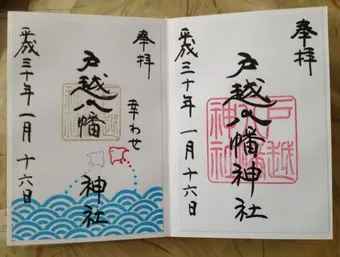 奉拝
戸越八幡神社
戸越八幡神社
平成三十年一月十六日
奉拝
幸わせ
戸越八幡神社
平成三十年一月十六日